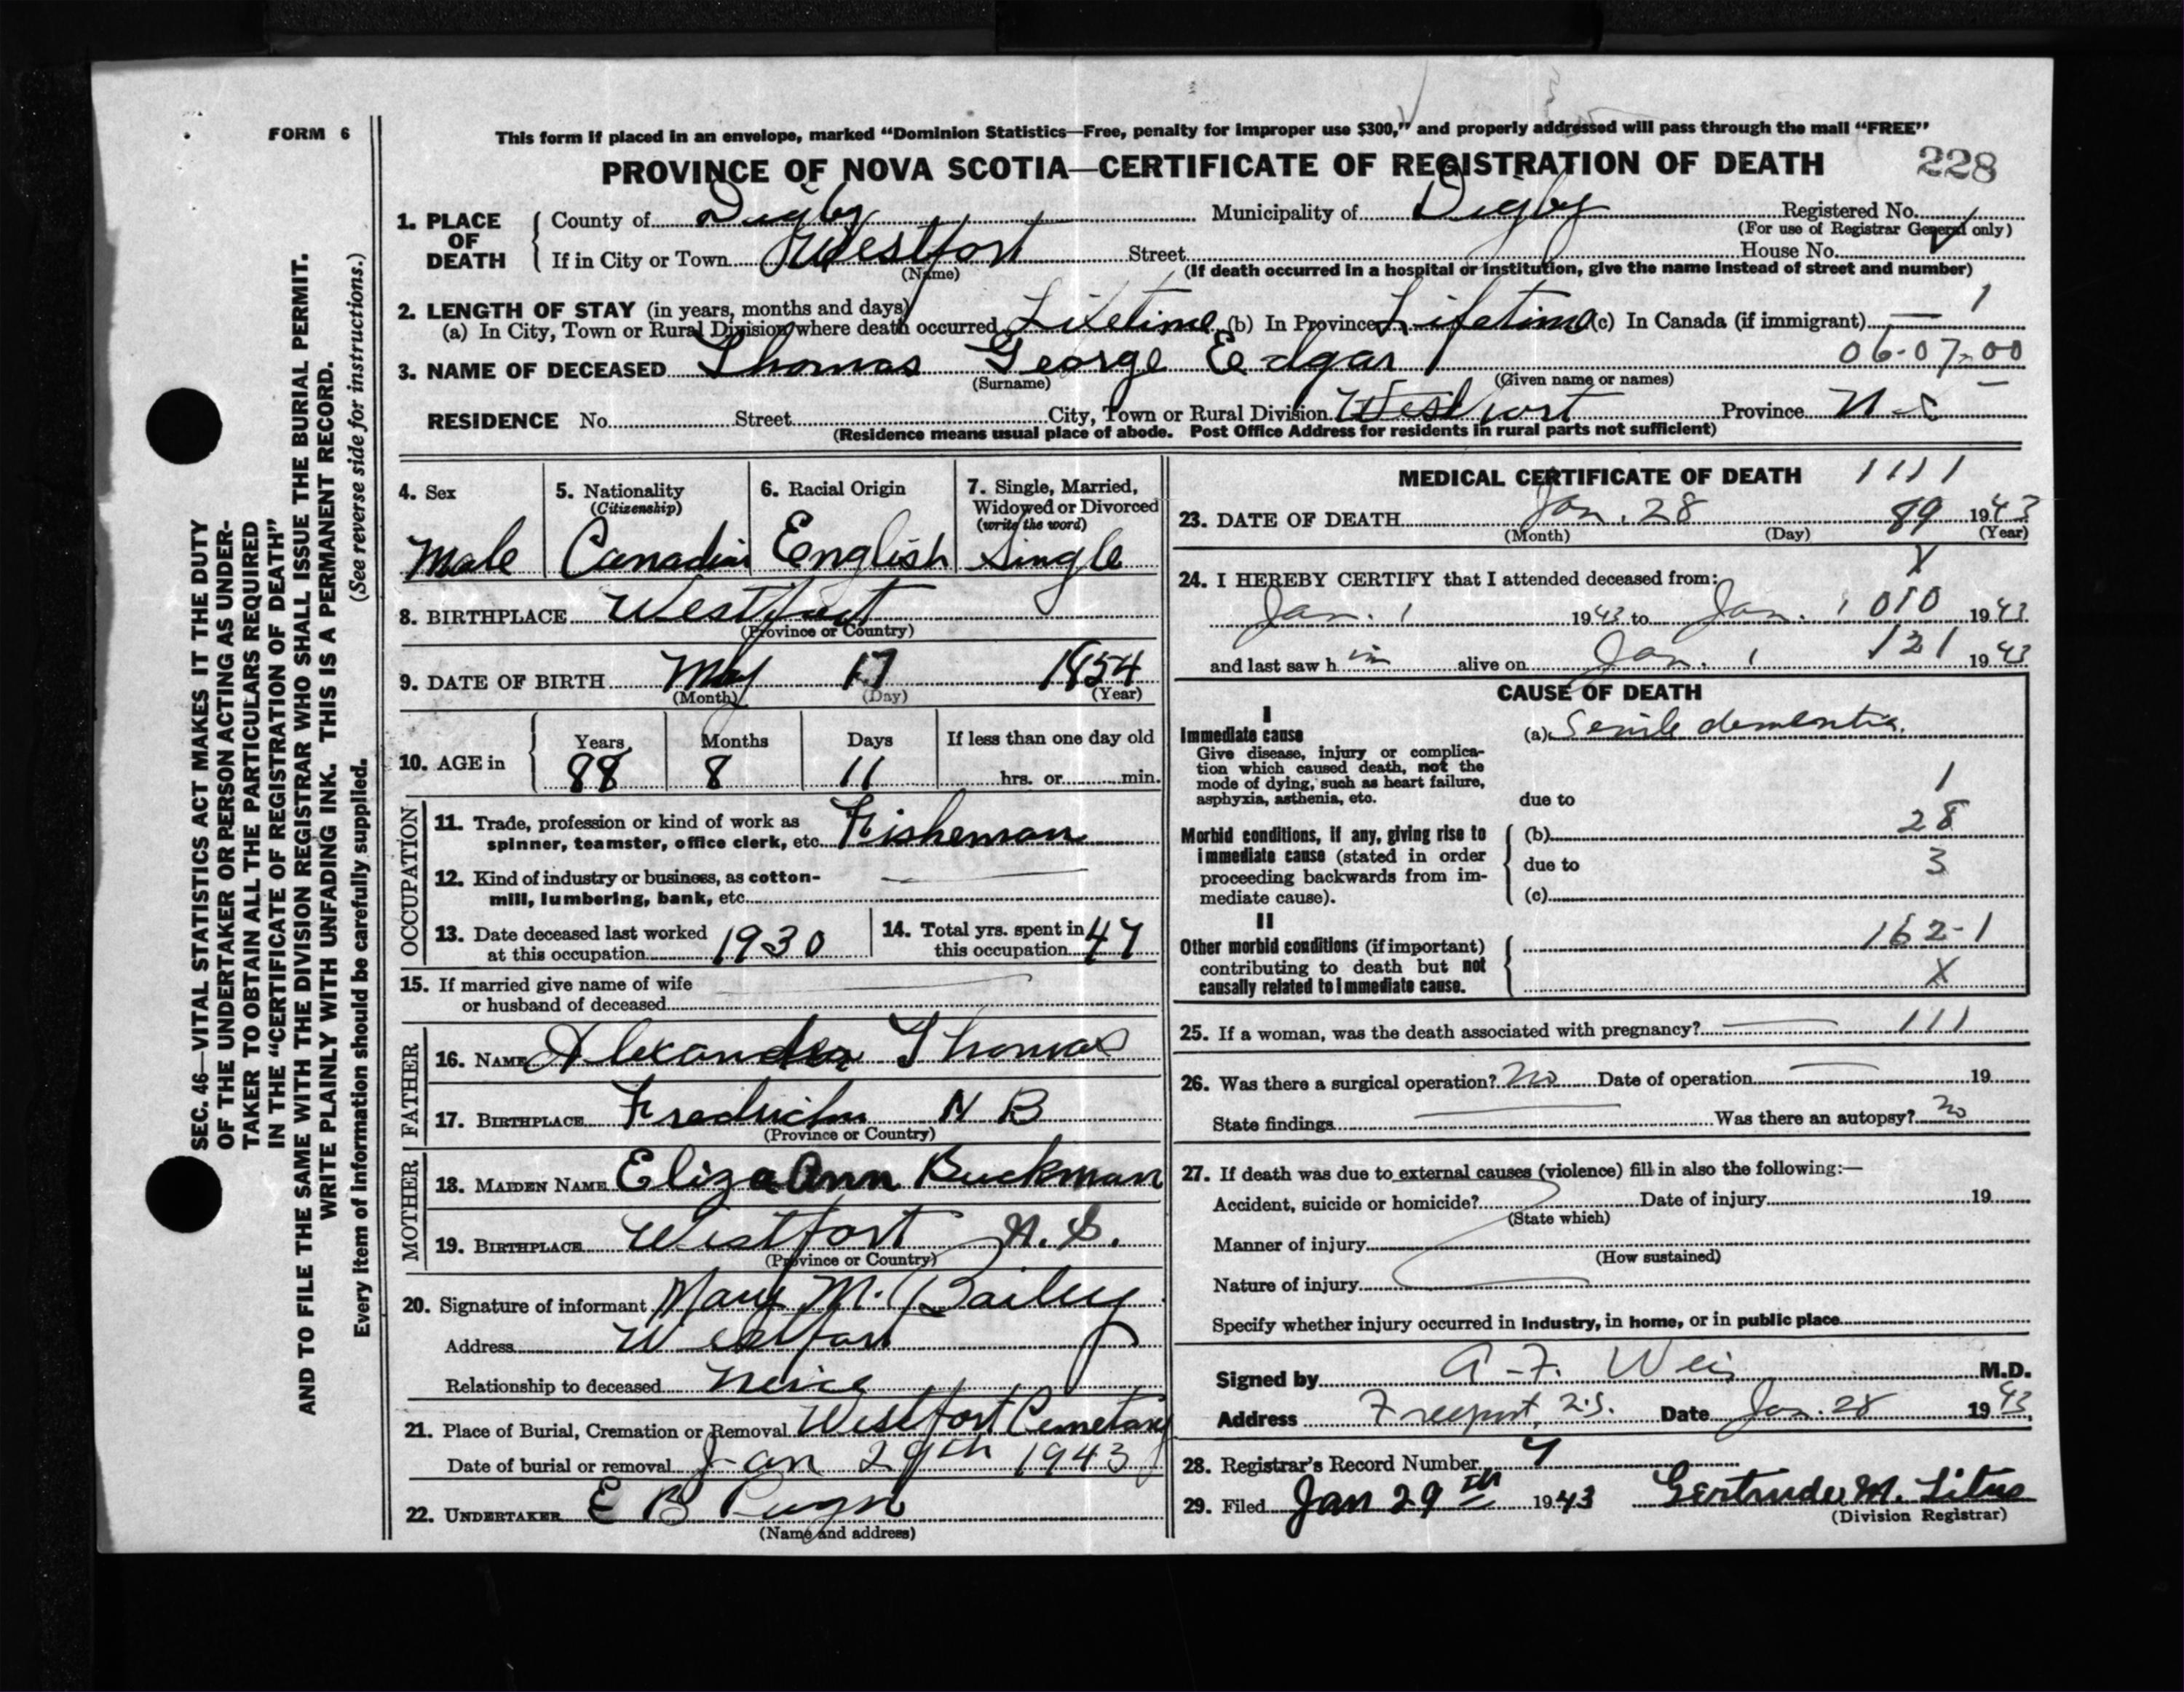 FORM 6
This form if placed in an envelope, marked “Dominion Statistics—Free, penalty for improper use $300,” and properly addressed will pass through the mail “FREE”
PROVINCE OF NOVA SCOTIA—CERTIFICATE OF REGISTRATION OF DEATH 228
1. PLACE OF DEATH
County of Digby Municipality of Digby Registered No.
(For use of Registrar General only)
If in City or Town Westport Street House No.
(Name) (If death occurred in a hospital or institution, give the name instead of street and number)
2. LENGTH OF STAY (in years, months and days) 1
(a) In City, Town or Rural Division where death occurred Lifetime (b) In Province Lifetime (c) In Canada (if immigrant) —
3. NAME OF DECEASED Thomas George Eedgar 06-07-00
(Surname) (Given name or names)
RESIDENCE No. Street City, Town or Rural Division Westport Province N.S
(Residence means usual place of abode. Post Office Address for residents in rural parts not sufficient)
4. Sex
Male
5. Nationality
(Citizenship)
Canadian
6. Racial Origin
English
7. Single, Married,
Widowed or Divorced
(write the word)
Single
8. BIRTHPLACE Westport
(Province or Country)
9. DATE OF BIRTH May 17 1854
(Month) (Day) (Year)
10. AGE in
Years Months Days If less than one day old
88 8 11 hrs. or min.
OCCUPATION
11. Trade, profession or kind of work as
spinner, teamster, office clerk, etc. Fisheman
12. Kind of industry or business, as cotton-
mill, lumbering, bank, etc. —
13. Date deceased last worked
at this occupation 1930
14. Total yrs. spent in
this occupation 47
15. If married give name of wife
or husband of deceased —
FATHER
16. NAME Alexander Thomas
17. BIRTHPLACE N B
(Province or Country)
MOTHER
18. MAIDEN NAME Eliza Ann Buckman
19. BIRTHPLACE Westport N.S.
(Province or Country)
20. Signature of informant Mary M. Bailey
Address Westport
Relationship to deceased Neice
21. Place of Burial, Cremation or Removal Westport Cemetary
Date of burial or removal Jan 29th 1943
22. UNDERTAKER E B
(Name and address)
MEDICAL CERTIFICATE OF DEATH 1111
23. DATE OF DEATH Jan. 28 89 1943
(Month) (Day) (Year)
X
24. I HEREBY CERTIFY that I attended deceased from:
Jan. 1 1943 to Jan. 1 010 1943
and last saw him alive on Jan. 1 121 1943
CAUSE OF DEATH
I
Immediate cause
Give disease, injury or complica-
tion which caused death, not the
mode of dying, such as heart failure,
asphyxia, asthenia, etc.
(a) Senile dementia.
1
due to
Morbid conditions, if any, giving rise to
immediate cause (stated in order
proceeding backwards from im-
mediate cause).
(b) 28
due to 3
(c)
II
Other morbid conditions (if important)
contributing to death but not
causally related to immediate cause.
162-1
X
25. If a woman, was the death associated with pregnancy? — 111
26. Was there a surgical operation? No Date of operation — 19
State findings — Was there an autopsy? No
27. If death was due to external causes (violence) fill in also the following:—
Accident, suicide or homicide? Date of injury 19
(State which)
Manner of injury
(How sustained)
Nature of injury
Specify whether injury occurred in industry, in home, or in public place
Signed by A. F. Weir M.D.
Address Freeport, N.S. Date Jan. 28 1943
28. Registrar's Record Number
29. Filed Jan 29th 1943 Gertrude M. Titus
(Division Registrar)
SEC. 46—VITAL STATISTICS ACT MAKES IT THE DUTY
OF THE UNDERTAKER OR PERSON ACTING AS UNDER-
TAKER TO OBTAIN ALL THE PARTICULARS REQUIRED
IN THE “CERTIFICATE OF REGISTRATION OF DEATH”
AND TO FILE THE SAME WITH THE DIVISION REGISTRAR WHO SHALL ISSUE THE BURIAL PERMIT.
WRITE PLAINLY WITH UNFADING INK. THIS IS A PERMANENT RECORD.
Every item of information should be carefully supplied. (See reverse side for instructions.)